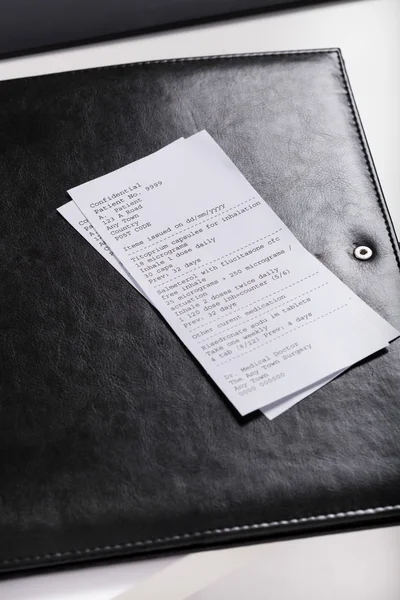 Confidential
Patient No. 9999
A. Patient
123 A Road
Any Town
Country
POST CODE
Items issued on dd/mm/yyyy
Tiotropium capsules for inhalation
18 micrograms
Inhale 1 dose daily
30 caps
Prev: 32 days
Salmeterol with fluticasone cfc
free inhale
25 micrograms + 250 micrograms /
actuation
Inhale 2 doses twice daily
1 120 dose inh+counter (5/6)
Prev: 32 days
Other current medication
Risedronate sodu 1m tablets
Take one weekly
4 tab (4/12) Prev: 4 days
Dr. Medical Doctor
The Any Town Surgery
Any Town
0000 000000